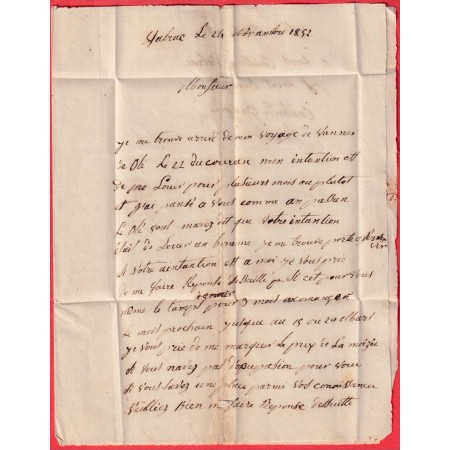 Le 24 Novembre 1852
Monsieur
je me trouve arrivé de mon voyage de vanner
Le 22 du couran mon intention est
de me Louer pour plusieurs mois au plutot
et j'ai pansé a vous comme an passan
vous mavez dit que votre intantion
était de Louer un homme je me trouve porte
si votre intantion est a moi je vous prie
de me faire Reponse de suitte si cet pour vous
même le tamps pour 3 mois a comance
Le mois prochain jusque au 15 ou 20 Mars
je vous prie de me marquer le prix de La
si vous navez pas d'ocupation pour vous
si vous savez une place parmi vos conoisance
veuilliez Bien me faire Reponse de suitte